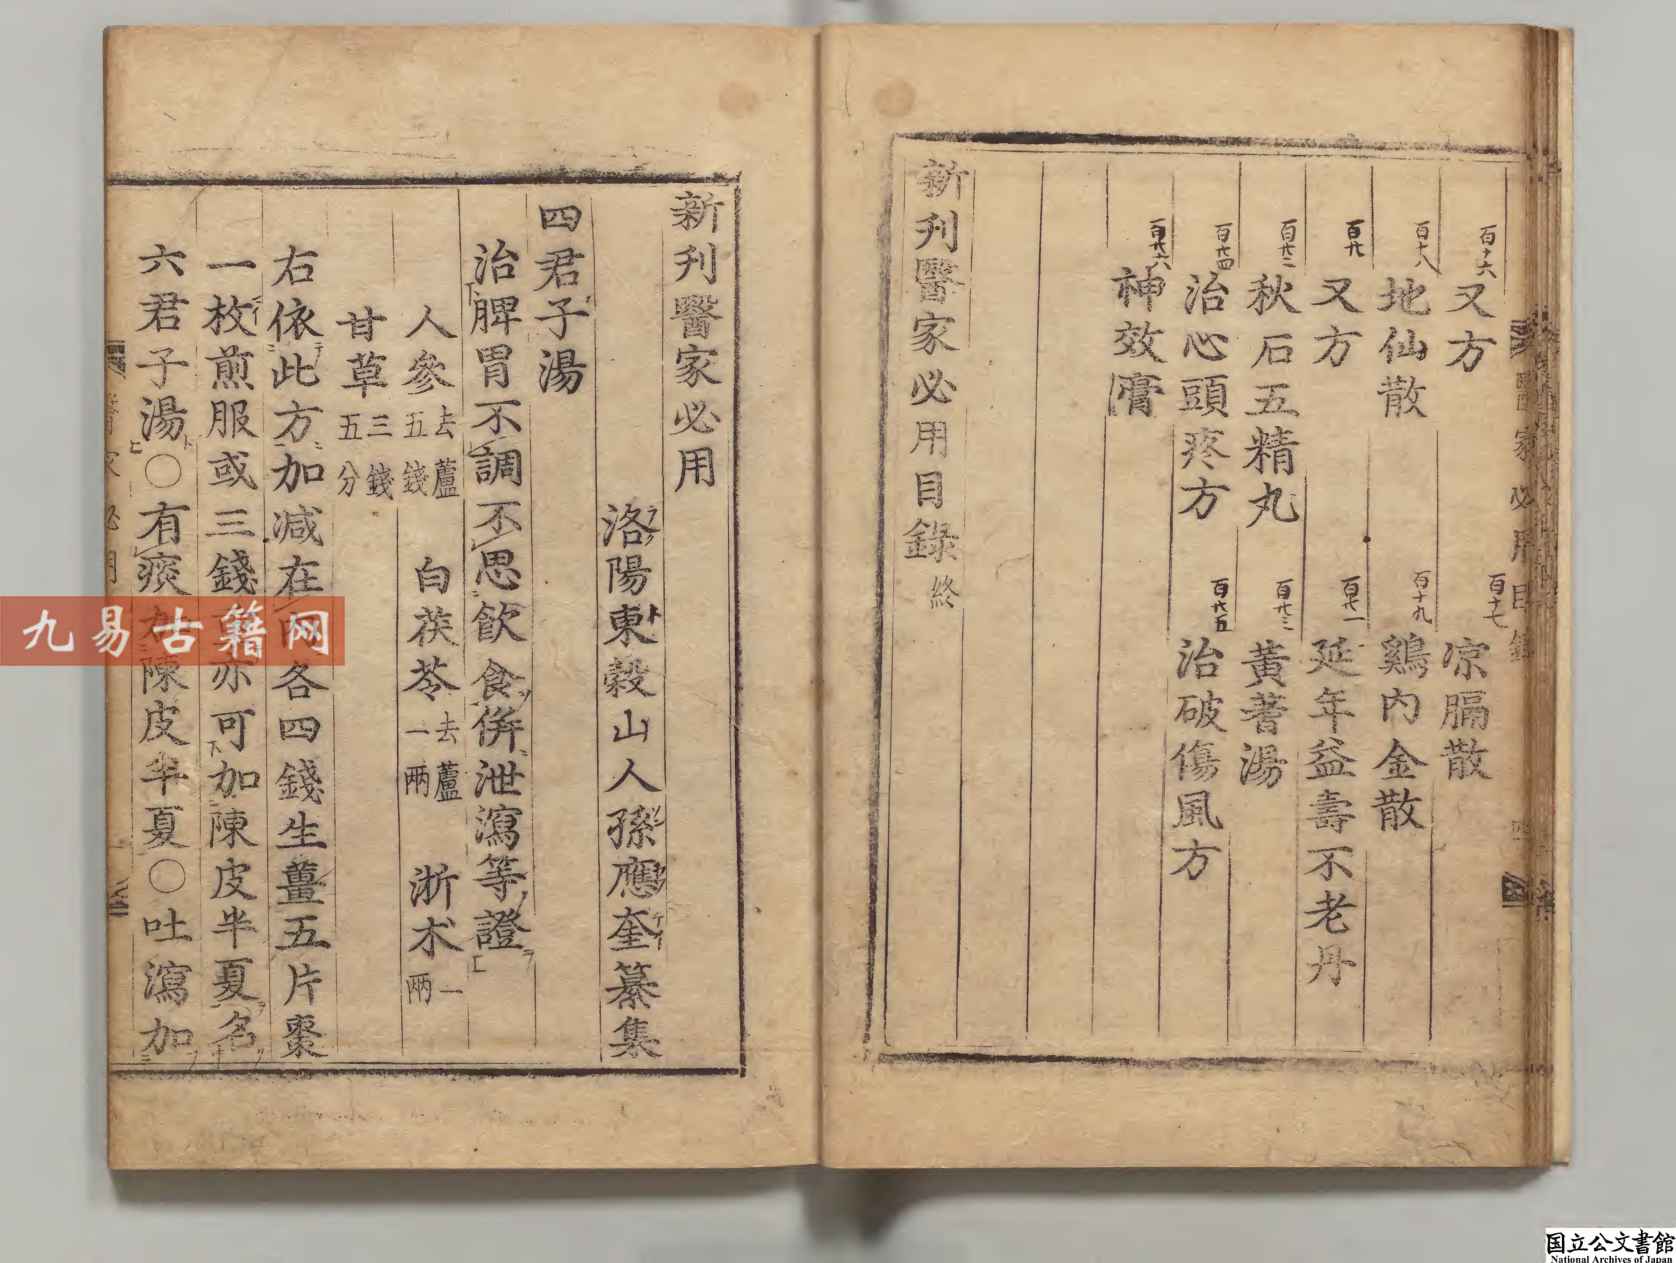 百十六 又方 百十七 凉膈散
百十八 地仙散 百十九 鷄内金散
百廿 又方 百廿一 延年益壽不老丹
百廿二 秋石五精丸 百廿三 黃蓍湯
百廿四 治心頭疼方 百廿五 治破傷風方
百廿六 神效膏
新刋醫家必用目錄 終
新刋醫家必用
洛陽東穀山人孫應奎纂集
四君子湯
治脾胃不調不思飲食併泄瀉等證
人參 去蘆五錢 白茯苓 去蘆一兩 浙术 一兩
甘草 三錢五分
右依此方加減在 各四錢生薑五片棗
一枚煎服或三錢 亦可加陳皮半夏名
六君子湯○有痰 陳皮半夏○吐瀉加
九易古籍网
国立公文書館
National Archives of Japan